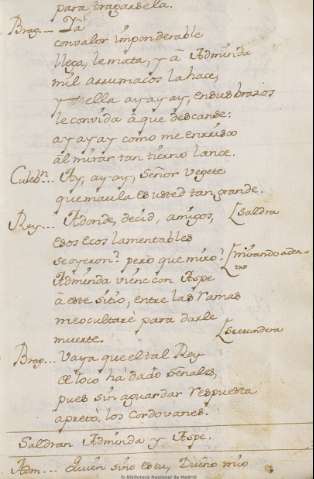 para tragarsela.
Brag.... Ya
con valor imponderable
llega, le mata, y à Adminda
mil arrumacos la hace,
y ella ay ay ay, en sus brazos
le convida à que descanse:
ay ay ay como me enrisco
al mirar tan tierno lance.
Culebn. Ay, ay ay, Señor vegete
que maula es usted tan grande.
Rey... Adonde, decid, amigos, [saldra
esos ecos lamentables
se oyeron? pero que miro? [mirando adentro
Adminda viene con Aspe
à este sitio, entre las ramas
me ocultaré para darle
muerte. [se esconde
Brag... Vaya que el tal Rey
de loco ha dado señales,
pues sin aguardar respuesta
apretó los cordovanes.
Saldran Adminda y Aspe.
Adm... Quien sino es tu, Dueño mio
© Biblioteca Nacional de Madrid